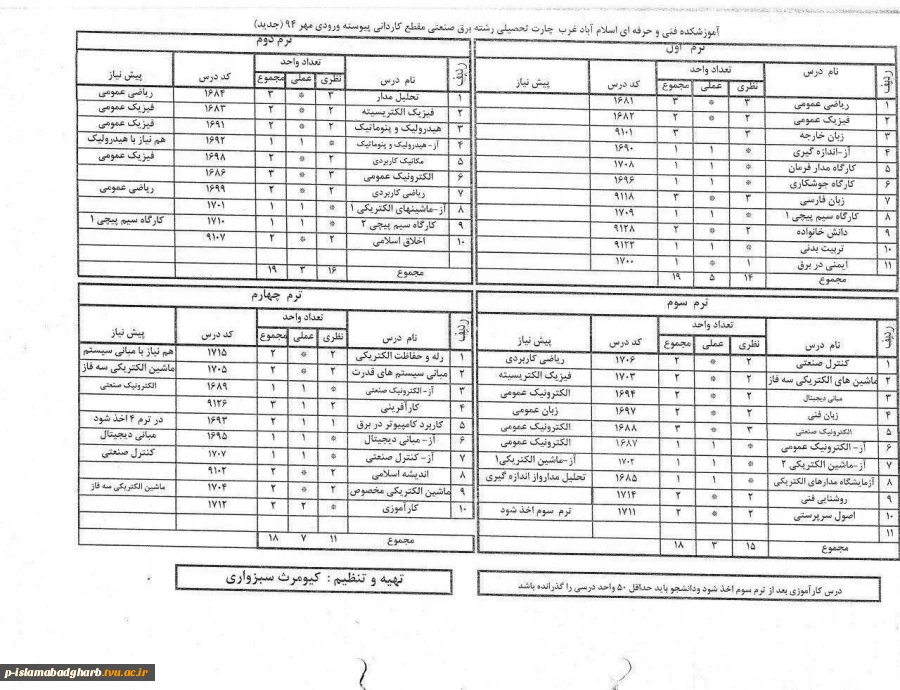 آموزشکده فنی و حرفه ای اسلام آباد غرب چارت تحصیلی رشته برق صنعتی مقطع کاردانی پیوسته ورودی مهر ۹۴ (جدید)
ترم اول
ردیف نام درس تعداد واحد کد درس پیش نیاز
نظری عملی مجموع
۱ ریاضی عمومی ۳ * ۳ ۱۶۸۱
۲ فیزیک عمومی ۲ * ۲ ۱۶۸۲
۳ زبان خارجه ۳ ۳ ۹۱۰۱
۴ آز-اندازه گیری * ۱ ۱ ۱۶۹۰
۵ کارگاه مدار فرمان * ۱ ۱ ۱۷۰۸
۶ کارگاه جوشکاری * ۱ ۱ ۱۶۹۶
۷ زبان فارسی ۳ * ۳ ۹۱۱۸
۸ کارگاه سیم پیچی ۱ * ۱ ۱ ۱۷۰۹
۹ دانش خانواده ۲ * ۲ ۹۱۲۸
۱۰ تربیت بدنی * ۱ ۱ ۹۱۲۲
۱۱ ایمنی در برق ۱ * ۱ ۱۷۰۰
مجموع ۱۴ ۵ ۱۹
ترم دوم
ردیف نام درس تعداد واحد کد درس پیش نیاز
نظری عملی مجموع
۱ تحلیل مدار ۳ * ۳ ۱۶۸۴ ریاضی عمومی
۲ فیزیک الکتریسیته ۲ * ۲ ۱۶۸۳ فیزیک عمومی
۳ هیدرولیک و پنوماتیک ۲ * ۲ ۱۶۹۱ فیزیک عمومی
۴ آز-هیدرولیک و پنوماتیک * ۱ ۱ ۱۶۹۲ هم نیاز با هیدرولیک
۵ مکانیک کاربردی ۲ * ۲ ۱۶۹۸ فیزیک عمومی
۶ الکترونیک عمومی ۳ * ۳ ۱۶۸۶
۷ ریاضی کاربردی ۲ * ۲ ۱۶۹۹ ریاضی عمومی
۸ آز-ماشینهای الکتریکی ۱ * ۱ ۱ ۱۷۰۱
۹ کارگاه سیم پیچی ۲ * ۱ ۱ ۱۷۱۰ کارگاه سیم پیچی ۱
۱۰ اخلاق اسلامی ۲ * ۲ ۹۱۰۷
مجموع ۱۶ ۳ ۱۹
ترم سوم
ردیف نام درس تعداد واحد کد درس پیش نیاز
نظری عملی مجموع
۱ کنترل صنعتی ۲ * ۲ ۱۷۰۶ ریاضی کاربردی
۲ ماشین های الکتریکی سه فاز ۲ * ۲ ۱۷۰۳ فیزیک الکتریسیته
۳ مبانی دیجیتال ۲ * ۲ ۱۶۹۴ الکترونیک عمومی
۴ زبان فنی ۲ * ۲ ۱۶۹۷ زبان عمومی
۵ الکترونیک صنعتی ۳ * ۳ ۱۶۸۸ الکترونیک عمومی
۶ آز- الکترونیک عمومی * ۱ ۱ ۱۶۸۷ الکترونیک عمومی
۷ آز-ماشین الکتریکی ۲ * ۱ ۱ ۱۷۰۲ آز-ماشین الکتریکی۱
۸ آزمایشگاه مدارهای الکتریکی * ۱ ۱ ۱۶۸۵ تحلیل مدارواز اندازه گیری
۹ روشنایی فنی ۲ * ۲ ۱۷۱۴
۱۰ اصول سرپرستی ۲ * ۲ ۱۷۱۱ ترم سوم اخذ شود
۱۱
مجموع ۱۵ ۳ ۱۸
ترم چهارم
ردیف نام درس تعداد واحد کد درس پیش نیاز
نظری عملی مجموع
۱ رله و حفاظت الکتریکی ۲ * ۲ ۱۷۱۵ هم نیاز با مبانی سیستم
۲ مبانی سیستم های قدرت ۲ * ۲ ۱۷۰۵ ماشین الکتریکی سه فاز
۳ آز- الکترونیک صنعتی * ۱ ۱ ۱۶۸۹ الکترونیک صنعتی
۴ کارآفرینی ۲ ۱ ۳ ۹۱۲۶
۵ کاربرد کامپیوتر در برق ۱ ۱ ۲ ۱۶۹۳ در ترم ۴ اخذ شود
۶ آز- مبانی دیجیتال * ۱ ۱ ۱۶۹۵ مبانی دیجیتال
۷ آز-کنترل صنعتی * ۱ ۱ ۱۷۰۷ کنترل صنعتی
۸ اندیشه اسلامی ۲ * ۲ ۹۱۰۲
۹ ماشین الکتریکی مخصوص ۲ * ۲ ۱۷۰۴ ماشین الکتریکی سه فاز
۱۰ کارآموزی * ۲ ۲ ۱۷۱۲
مجموع ۱۱ ۷ ۱۸
درس کارآموزی بعد از ترم سوم اخذ شود ودانشجو باید حداقل ۵۰ واحد درسی را گذرانده باشد
تهیه و تنظیم : کیومرث سبزواری
p-islamabadgharb.tvu.ac.ir